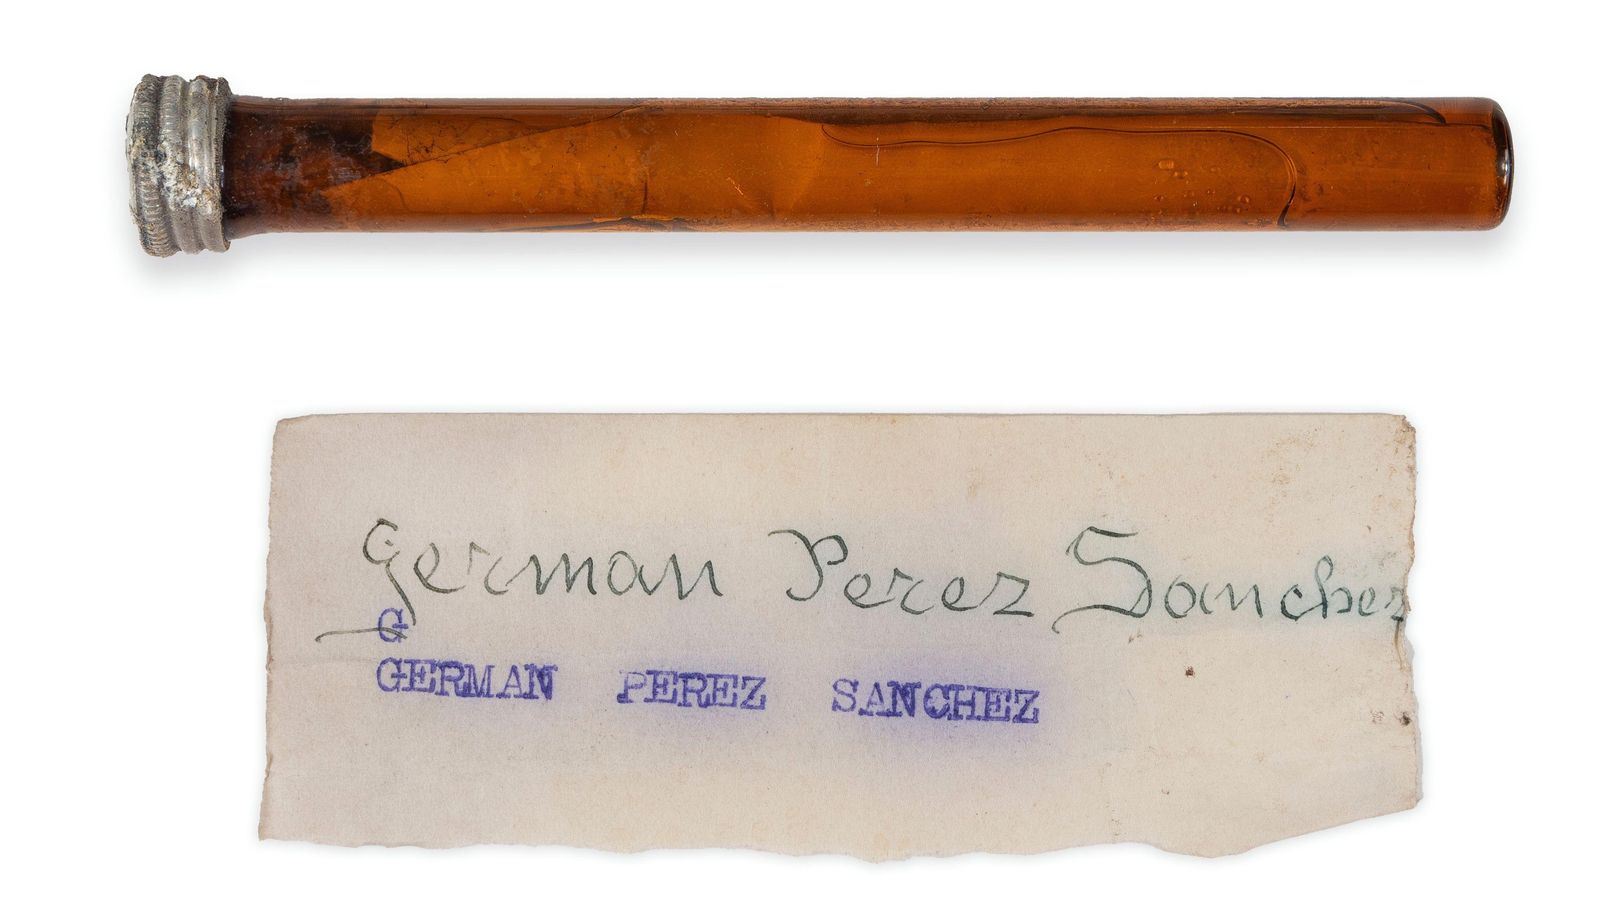 German Perez Sanchez
G
GERMAN PEREZ SANCHEZ